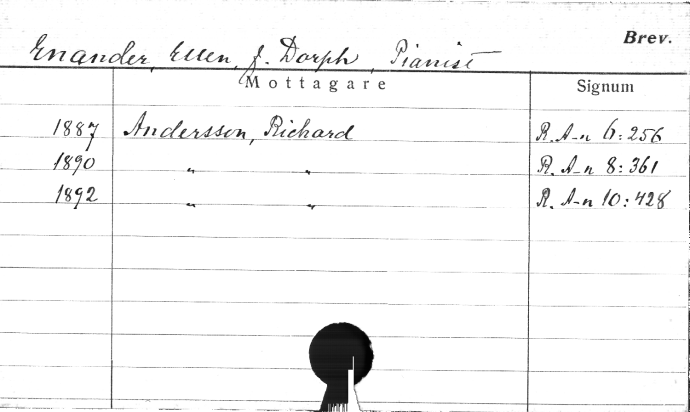 Brev.
Enander, Ellen, f. Dorph, Pianist
Mottagare Signum
1887 Andersson, Richard R. A-n 6:256
1890 " " R. A-n 8:361
1892 " " R. A-n 10:428